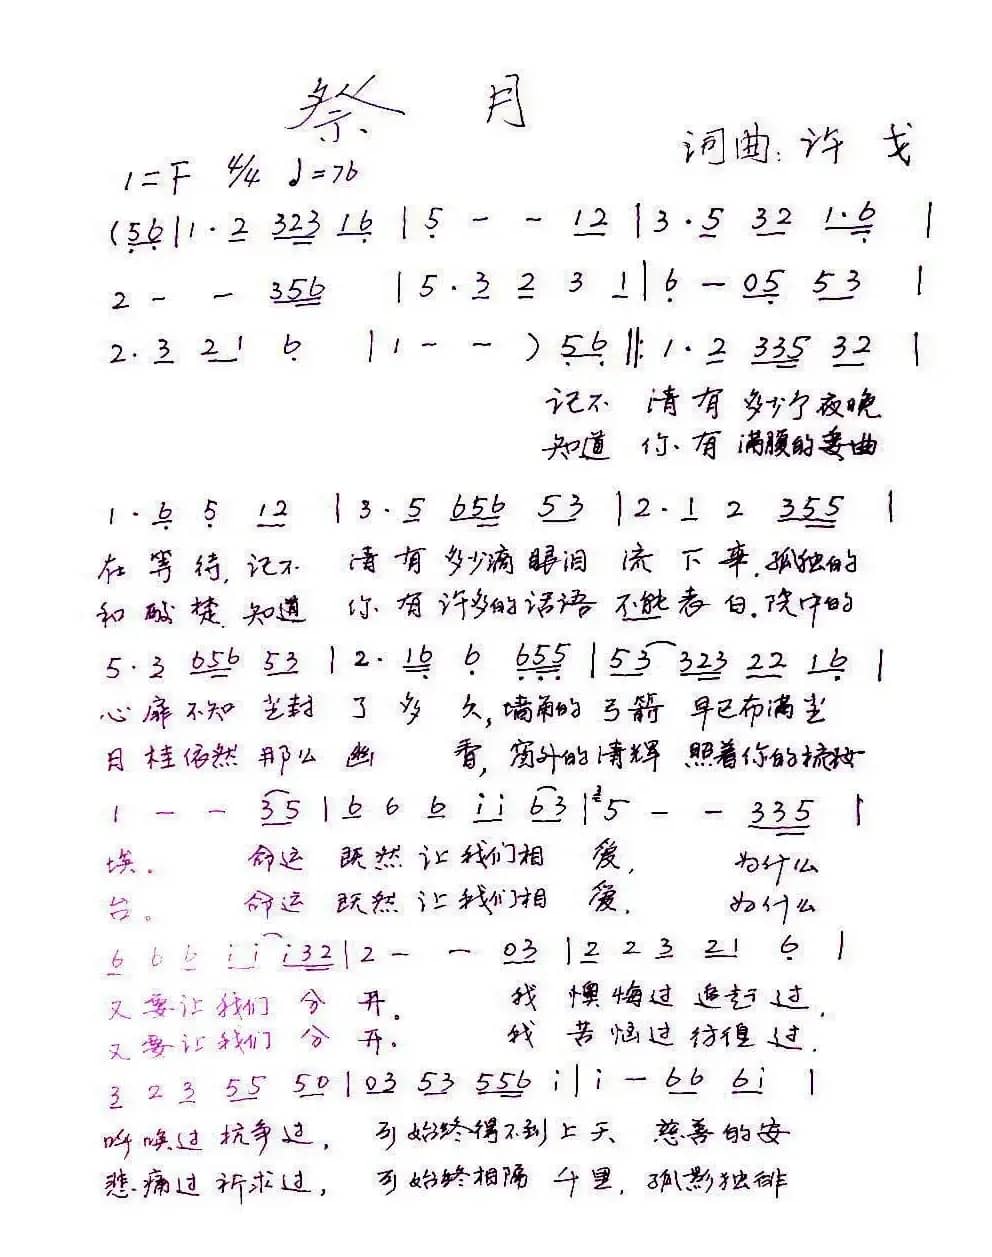 祭 月
词曲: 许 戈
1=F 4/4 ♩=76
(56|1·2 323 16|5 - - 12|3·5 32 1·6|
2 - - 356 |5·3 2 3 1|6 - 05 53 |
2·3 21 6 |1 - - ) 56‖:1·2 335 32|
记不 清有 多少个夜晚
知道 你有 满腹的委曲
1·6 5 12 |3·5 656 53|2·1 2 355|
在等待,记不 清有多少滴眼泪 流下来.孤独的
和酸楚,知道 你有许多的话语 不能表白.院中的
5·3 656 53|2·16 6 655|53 323 22 16|
心扉不知尘封 了多 久,墙角的弓箭 早已布满尘
月桂依然那么幽 香,窗外的清辉 照着你的梳妆
1 - - 35|6 6 6 ii 63|5 - - 335|
埃. 命运 既然让我们相 爱, 为什么
台。 命运 既然让我们相 爱, 为什么
6 6 6 ii i32|2 - - 03|2 2 3 21 6|
又要让我们 分 开。 我 懊悔过 追赶过,
又要让我们 分 开. 我 苦恼过彷徨过.
3 2 3 55 50|03 53 556 i|i - 66 6i|
呼唤过抗争过, 可始终得不到上天 慈善的安
悲痛过祈求过, 可始终相隔 千里, 孤影独徘